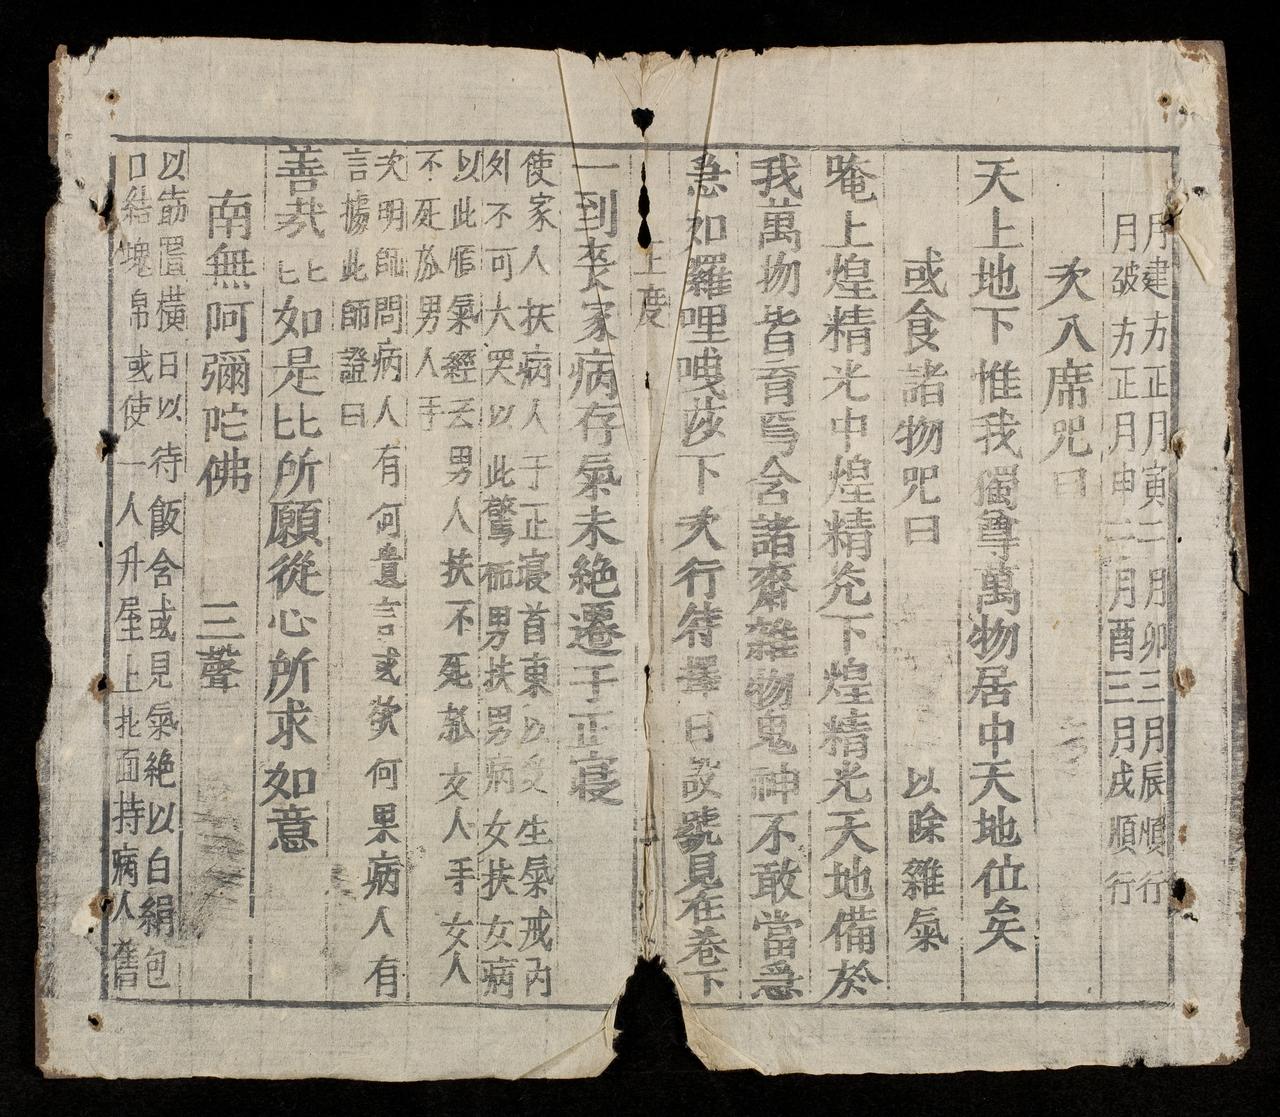 月建方正月寅二月卯三月辰順行
月破方正月申二月酉三月戌順行
次入席咒曰
天上地下惟我獨尊萬物居中天地位矣
或食諸物咒曰 以除雜氣
唵上煌精光中煌精光下煌精光天地備於
我萬物皆育焉含諸齋雜物鬼神不敢當急
急如羅哩㖿莎下次行符擇日設號見在卷下
上度 三
一到喪家病存氣未絶遷于正寢
使家人扶病人于正寢首東以受生氣戒內
外不可大哭以此驚怖男扶男病女扶女病
以此順氣經云男人扶不死於女人手女人
不死於男人手
次明師問病人有何遺言或歎何果病人有
言據此師證曰
善哉比比如是比所願從心所求如意
南無阿彌陀佛 三聲
以筯置橫日以待飯含或見氣絶以白絹包
口結塊帛或使一人升屋上北面持病人舊